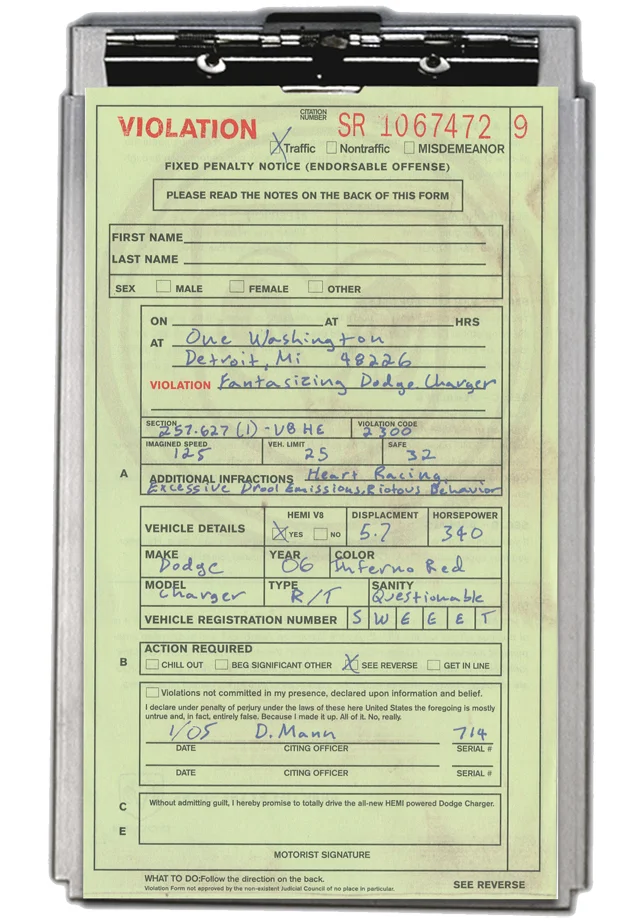 CITATION NUMBER
VIOLATION SR 1067472 9
Traffic Nontraffic MISDEMEANOR
FIXED PENALTY NOTICE (ENDORSABLE OFFENSE)
PLEASE READ THE NOTES ON THE BACK OF THIS FORM
FIRST NAME
LAST NAME
SEX MALE FEMALE OTHER
ON AT HRS
AT One Washington
Detroit, Mi 48226
VIOLATION Fantasizing Dodge Charger
SECTION VIOLATION CODE
257.627 (1) - V8 HE 2300
IMAGINED SPEED VEH. LIMIT SAFE
125 25 32
A
ADDITIONAL INFRACTIONS Heart Racing,
Excessive Drool Emissions, Riotous Behavior
VEHICLE DETAILS HEMI V8 DISPLACMENT HORSEPOWER
YES NO 5.7 340
MAKE YEAR COLOR
Dodge 06 Inferno Red
MODEL TYPE SANITY
Charger R/T Questionable
VEHICLE REGISTRATION NUMBER S W E E E T
B
ACTION REQUIRED
CHILL OUT BEG SIGNIFICANT OTHER SEE REVERSE GET IN LINE
Violations not committed in my presence, declared upon information and belief.
I declare under penalty of perjury under the laws of these here United States the foregoing is mostly
untrue and, in fact, entirely false. Because I made it up. All of it. No, really.
1/05 D. Mann 714
DATE CITING OFFICER SERIAL #
DATE CITING OFFICER SERIAL #
C Without admitting guilt, I hereby promise to totally drive the all-new HEMI powered Dodge Charger.
E
MOTORIST SIGNATURE
WHAT TO DO:Follow the direction on the back.
Violation Form not approved by the non-existent Judicial Council of no place in particular.
SEE REVERSE